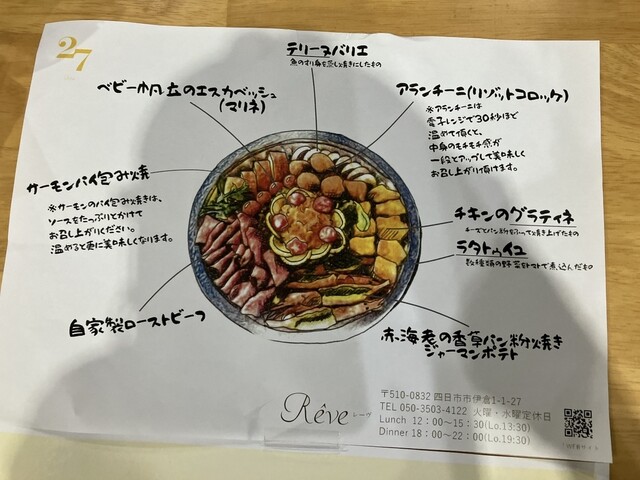 27
テリーヌバリエ
魚のすり身を蒸し焼きにしたもの
ベビー帆立のエスカベッシュ
(マリネ)
アランチーニ(リゾットコロッケ)
※アランチーニは
電子レンジで30秒ほど
温めて頂くと、
中身のモチモチ感が
一段とアップして美味しく
お召し上がり頂けます。
サーモンパイ包み焼
※サーモンのパイ包み焼きは、
ソースをたっぷりとかけて
お召し上がりください。
温めると更に美味しくなります。
チキンのグラティネ
チーズとパン粉をふって焼き上げたもの
ラタトゥイユ
数種類の野菜をトマトで煮込んだもの
自家製ローストビーフ
赤海老の香草パン粉焼き
ジャーマンポテト
Rêve レーヴ
〒510-0832 四日市市伊倉1-1-27
TEL 050-3503-4122 火曜・水曜定休日
Lunch 12：00～15：30(Lo.13:30)
Dinner 18：00～22：00(Lo.19:30)